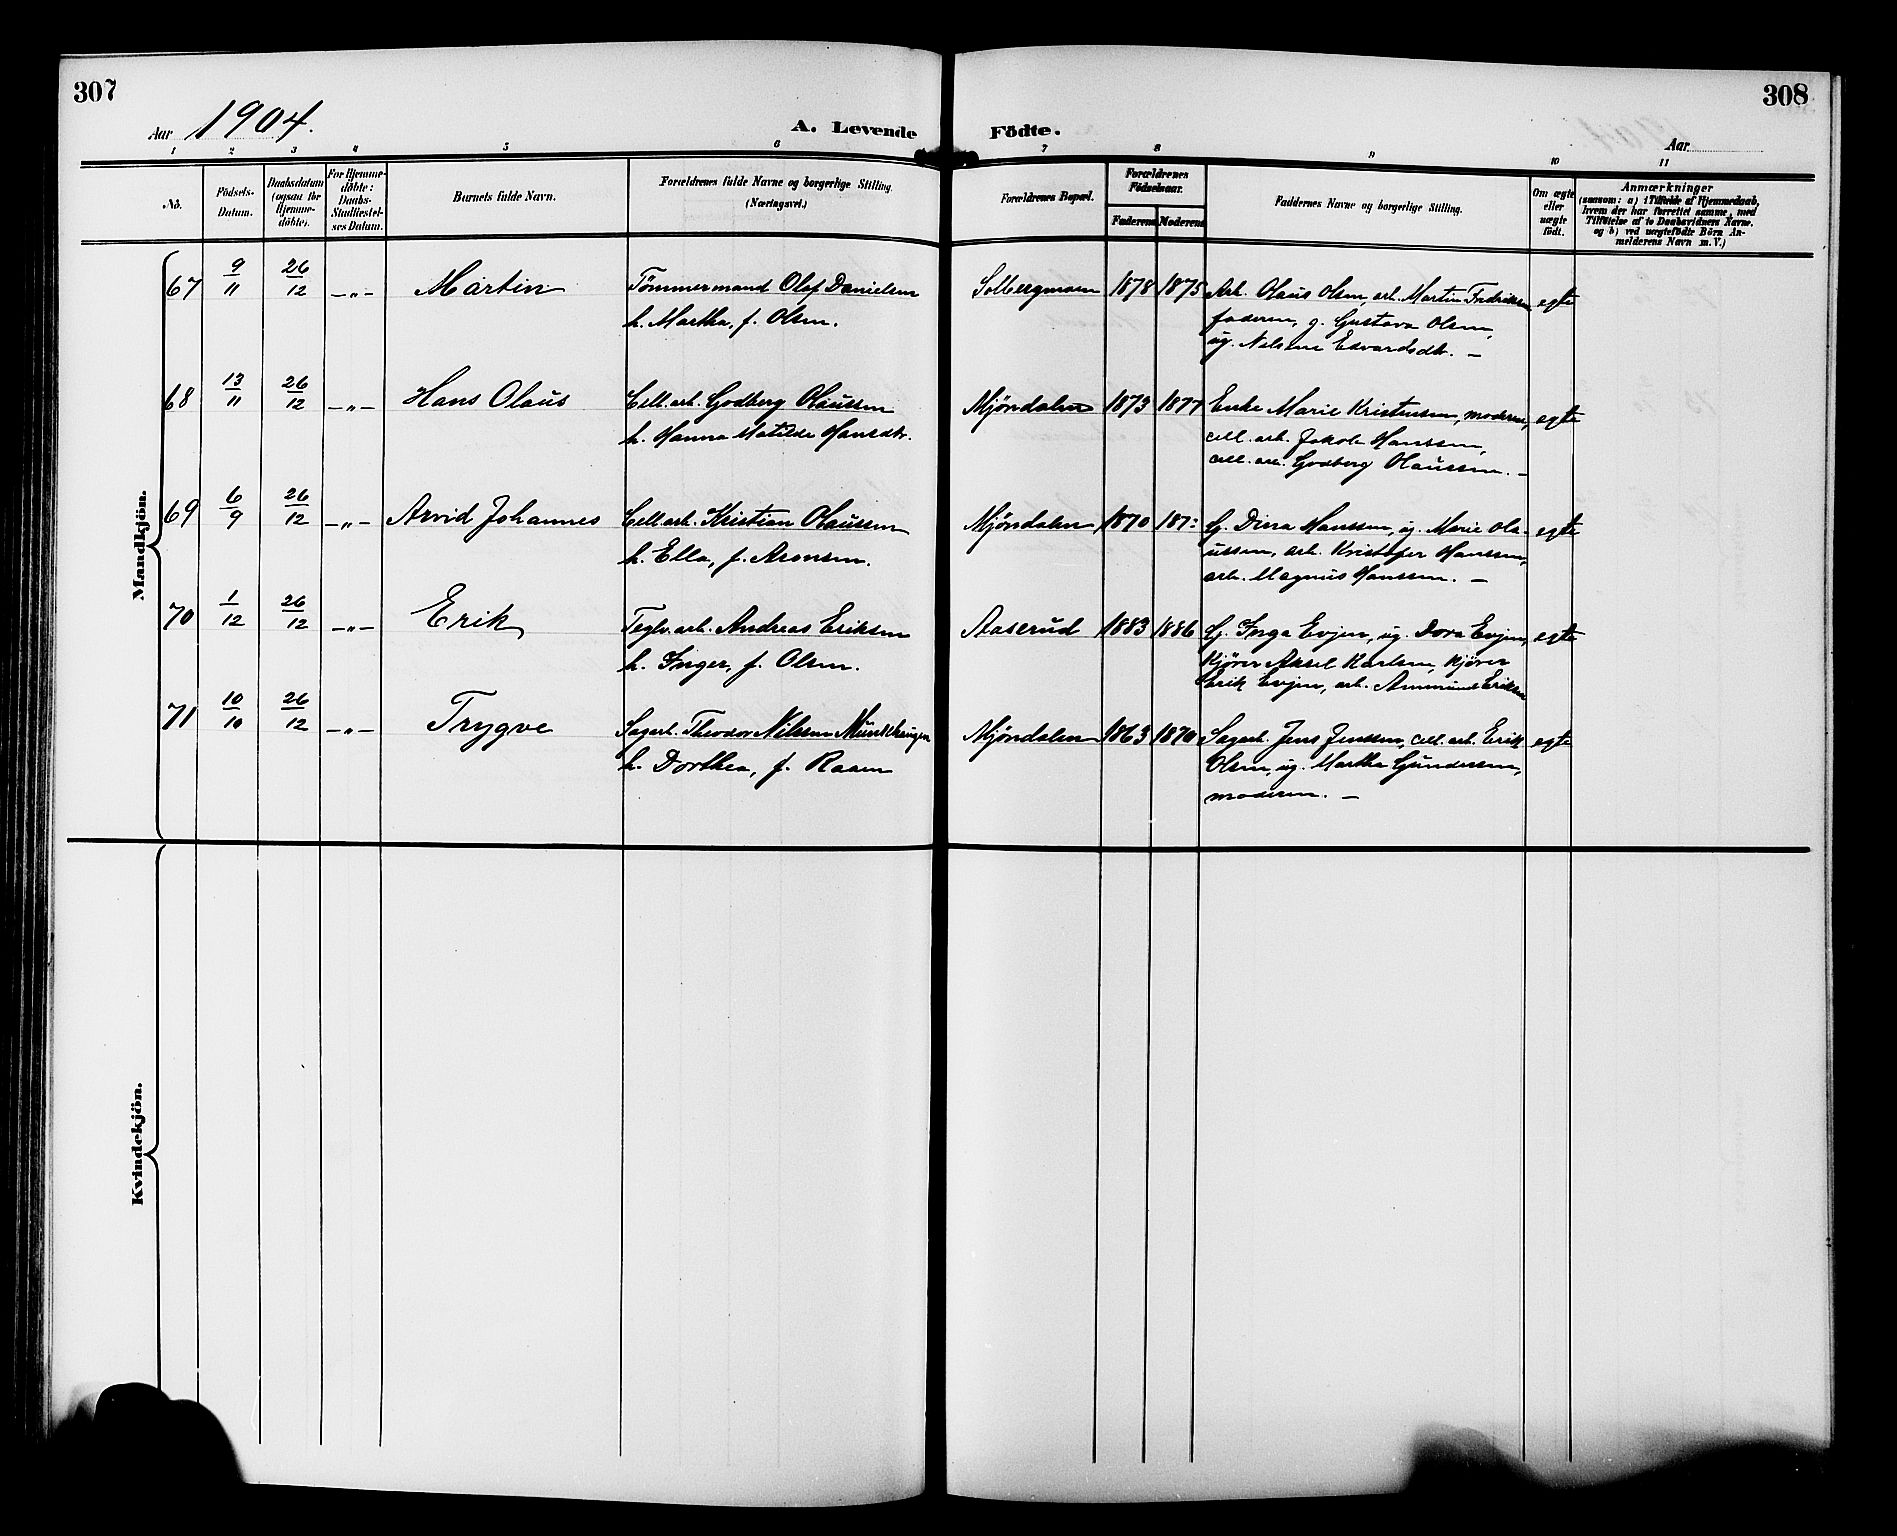 307
308
Aar 1904.
A. Levende Födte.
Aar
1 2 3 4 5 6 7 8 9 10 11
No.
Födsels-Datum.
Daabsdatum (ogsaa for Hjemme-döbte).
For Hjemme-döbte: Daabs-Stadfæstel-ses Datum.
Barnets fulde Navn.
Forældrenes fulde Navne og borgerlige Stilling.
(Næringsvei.)
Forældrenes Bopæl.
Forældrenes Födselsaar.
Faderens Moderens
Faddernes Navne og borgerlige Stilling.
Om ægte eller uægte födt.
Anmærkninger
(saasom: a) i Tilfælde af Hjemmedaab,
hvem der har forrettet samme, med
Tilföielse af to Daabsvidners Navne.
og b) ved uægtefödte Börn An-
melderens Navn m. V.)
Mandkjön.
67 9/11 26/12 -„- Martin Tömmermand Olaf Danielsen Solbergmoen 1878 1875 Arb. Olaus Olsen, arb. Martin Fredriksen, egte
h. Martha, f. Olsen. faderen, g. Gustava Olsen,
ug. Nelsine Edvardsdtr. –
68 13/11 26/12 -„- Hans Olaus Cell.arb. Godberg Olaussen Mjöndalen 1873 1877 Enke Marie Kristensen, moderen, egte
h. Hanna Matilde Hansdtr. cell. arb. Jakob Hanssen,
cell. arb. Godberg Olaussen. –
69 6/9 26/12 -„- Arvid Johannes Cell.arb. Kristian Olaussen Mjöndalen 1870 187 G. Dina Hanssen, ug. Marie Ola- egte
h. Ella, f. Aronsen. ussen, arb. Kristofer Hanssen,
arb. Magnus Hanssen. –
70 1/12 26/12 -„- Erik Teglv.arb. Andreas Eriksen Aaserud 1883 1886 G. Inga Evjen, ug. Dora Evjen, egte
h. Inger, f. Olsen. Kjörer Aksel Karlsen, Kjörer
Erik Evjen, arb. Ammund Eriksen
71 10/10 26/12 -„- Trygve Sagarb. Theodor Nilssen Munkhaugen Mjöndalen 1863 1870 Sagarb. Jens Jenssen, cell. arb. Erik egte
h. Dorthea, f. Raaen Olsen, ug. Martha Gundersen,
moderen. –
Kvindekjön.